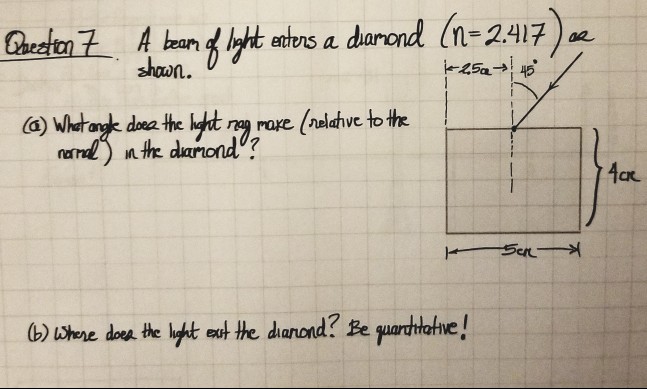 Question 7 A beam of light enters a diamond (n=2.417) as
shown.
2.5cm 45°
(a) What angle does the light ray make (relative to the
normal) in the diamond?
4cm
5cm
(b) Where does the light exit the diamond? Be quantitative!